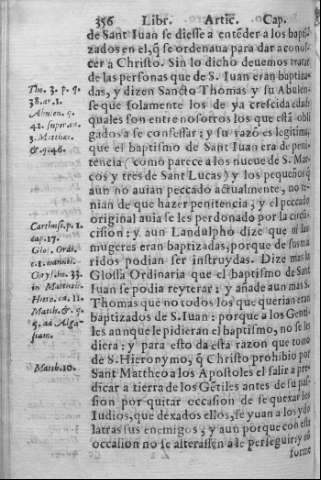 356 Libr. Artic. Cap.
de Sant Iuan se diesse a entēder a los bapti-
zados en el, q̃ se ordenaua para dar a conos-
cer a Christo. Sin lo dicho deuemos tratar
de las personas que de S. Iuan eran baptiza-
das, y dizen Sancto Thomas y su Abulen-
se que solamente los de ya crescida edad
quales son entre nosotros los que està obli-
gados a se confessar: y su razō es legitima,
que el baptismo de Sant Iuan era de peni-
tencia (como parece a los nueue de S. Mar-
cos y tres de Sant Lucas) y los pequeños q̃
aun no auian peccado actualmente, no te-
nian de que hazer penitencia, y el peccado
original auia se les perdonado por la circū-
cision: y aun Landulpho dize que ni las
mugeres eran baptizadas, porque de sus ma
ridos podian ser instruydas. Dize mas la
Glossa Ordinaria que el baptismo de Sant
Iuan se podia reyterar: y añade aun mas S.
Thomas que no todos los que querian eran
baptizados de S. Iuan: porque a los Genti-
les aunque le pidieran el baptismo, no se les
diera: y para esto da esta razon que tomo
de S. Hieronymo, q̃ Christo prohibio por
Sant Mattheo a los Apostoles el salir a pre-
dicar a tierra de los Gētiles antes de su pas-
sion por quitar occasion de se quexar los
Iudios, que dexados ellos, se yuan a los ydo
latras sus enemigos, y aun porque con esta
occasion no se alterassen a le perseguir: y no
Tho. 3. p. q.
38. ar. 1.
42. super an.
3. Matthæ.
& q. 46.
Carthus. p. 1.
cap. 17.
Glos. Ordi.
Chrysost. 33.
in Matthæū.
Hiero. ca. 11.
Matth. & q.
Matth. 10.